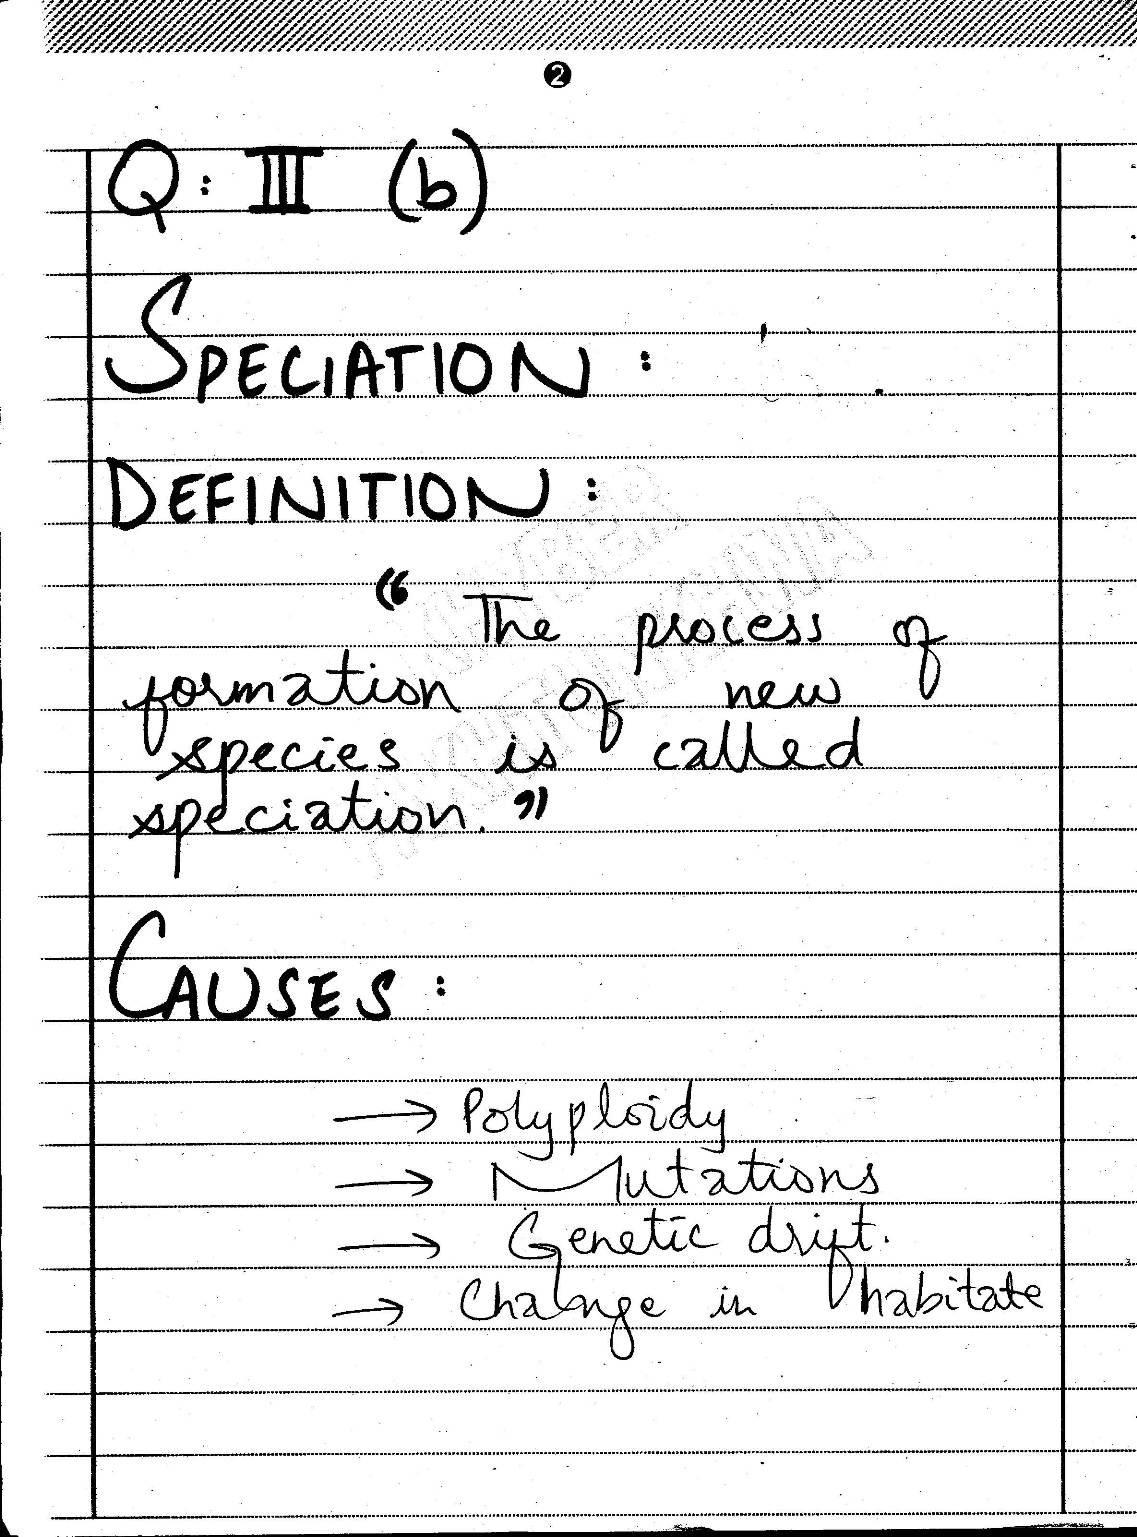 2
Q: III (b)
SPECIATION:
DEFINITION:
“ The process of
formation of new
species is called
speciation. ”
CAUSES:
→ Polyploidy
→ Mutations
→ Genetic drift.
→ Change in habitate